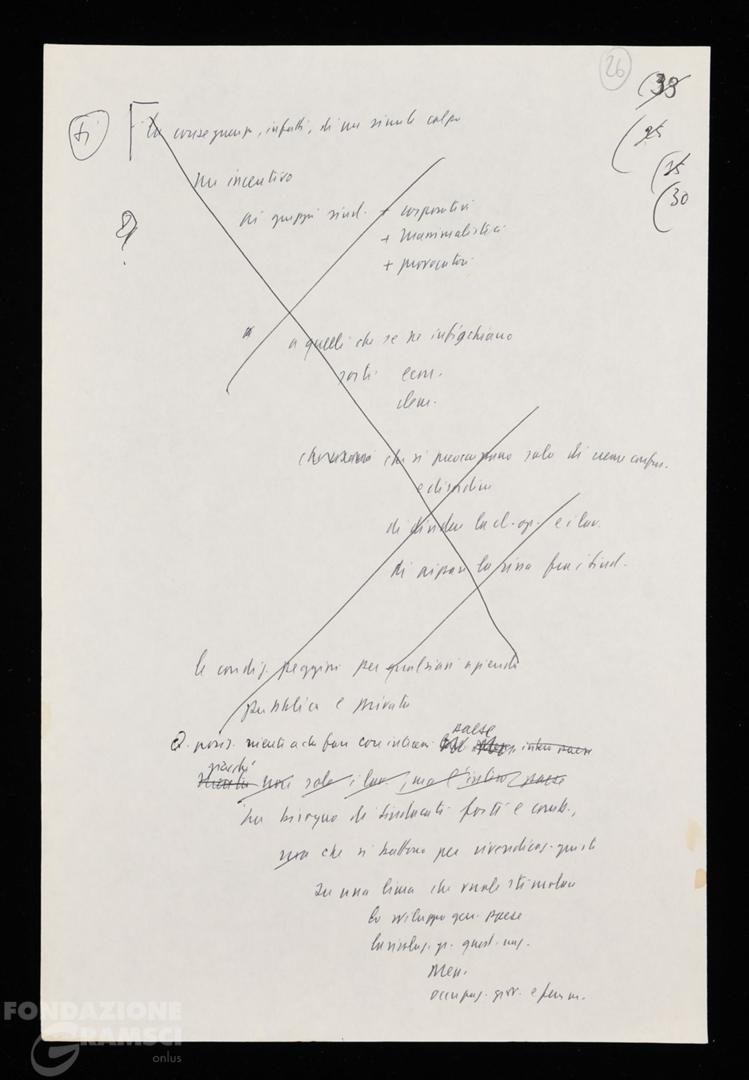 26
(39
(35
(25
(30
ti
La conseguenza, infatti, di un simile colpo
un incentivo
ai gruppi sind. + corporativi
+ massimalistici
+ provocatori
?
a quelli che se ne infischiano
sorti econ.
dem.
che si preoccupano solo di creare confus.
e disordine
di dividere la cl. op. e i lav.
di aprire la rissa fra i sind.
le condiz. peggiori per qualsiasi azienda
pubblica e privata
Q. posiz. niente a che fare con interessi paese intero paese
giacché non solo i lav., ma l'intero paese
ha bisogno di sindacati forti e comb.,
ma che si battono per rivendicaz. giuste
in una linea che vuole stimolare
lo sviluppo gen. paese
la risoluz. gr. quest. naz.
Mezz.
occupaz. giov. e femm.
FONDAZIONE
GRAMSCI
onlus